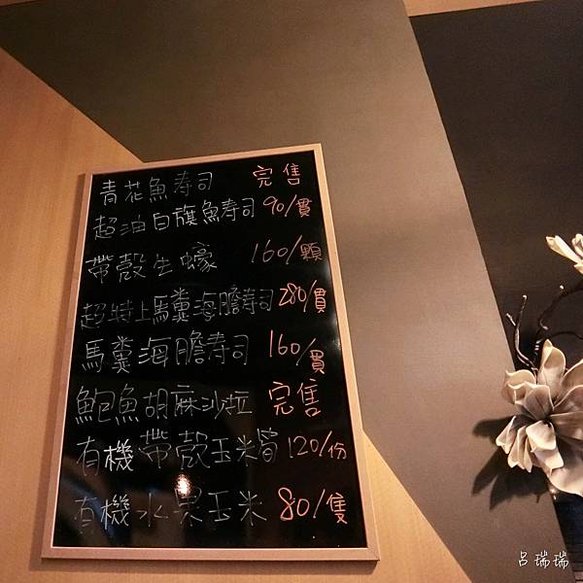 青花魚壽司 完售
超油白旗魚壽司 90/貫
帶殼生蠔 160/顆
超特上馬糞海膽壽司 280/貫
馬糞海膽壽司 160/貫
鮑魚胡麻沙拉 完售
有機帶殼玉米筍 120/份
有機水果玉米 80/隻
呂瑞瑞